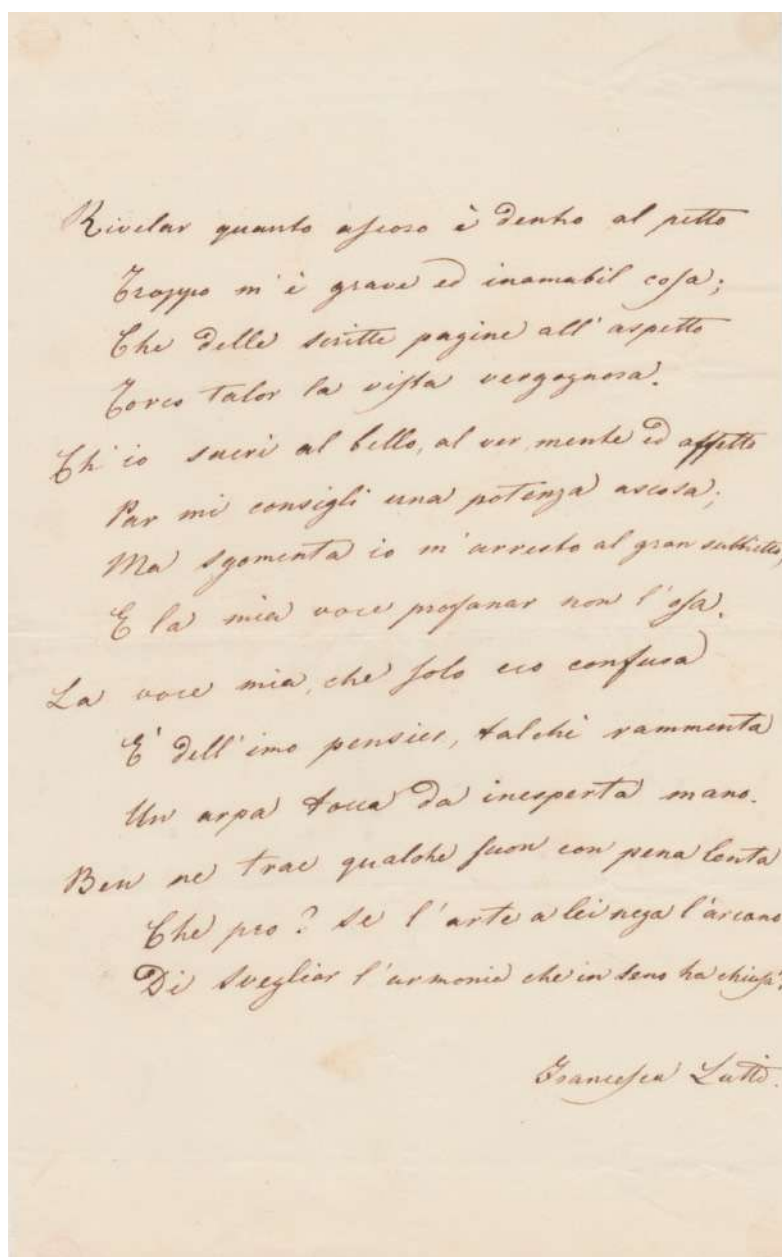 Rivelar quanto ascoso è dentro al petto
Troppo m'è grave ed inamabil cosa;
Che delle scritte pagine all'aspetto
Torco talor la vista vergognosa.
Ch'io sacri al bello, al ver, mente ed affetto
Par mi consigli una potenza ascosa;
Ma sgomenta io m'arresto al gran subbietto,
E la mia voce profanar non l'osa.
La voce mia, che solo eco confusa
E' dell'imo pensier, talchè rammenta
Un arpa tocca da inesperta mano.
Ben ne trae qualche suon con pena lenta
Che pro? se l'arte a lei nega l'arcano
Di svegliar l'armonie che in seno ha chiusa?
Francesca Lutti.